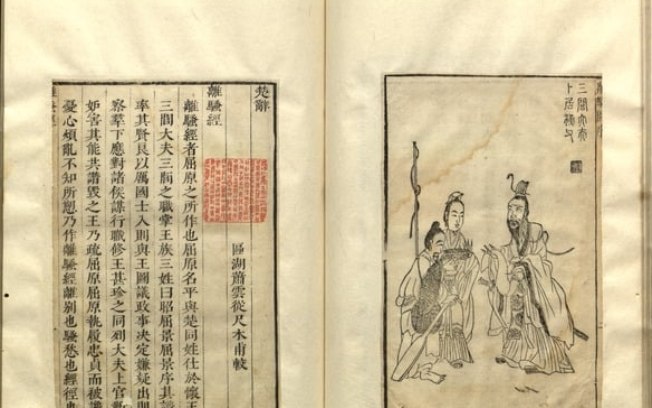 三閭大夫
卜居漁父
楚辭
區湖蕭雲從尺木甫較
離騷經
離騷經者屈原之所作也屈原名平與楚同姓仕於懷王
三閭大夫三閭之職掌王族三姓曰昭屈景屈原序其譜
率其賢良以厲國士入則與王圖議政事決定嫌疑出則
察羣下應對諸侯謀行職修王甚珍之同列大夫上官靳
妒害其能共譖毀之王乃疏屈原屈原執履忠貞而被讒
憂心煩亂不知所愬乃作離騷經離別也騷愁也經徑也